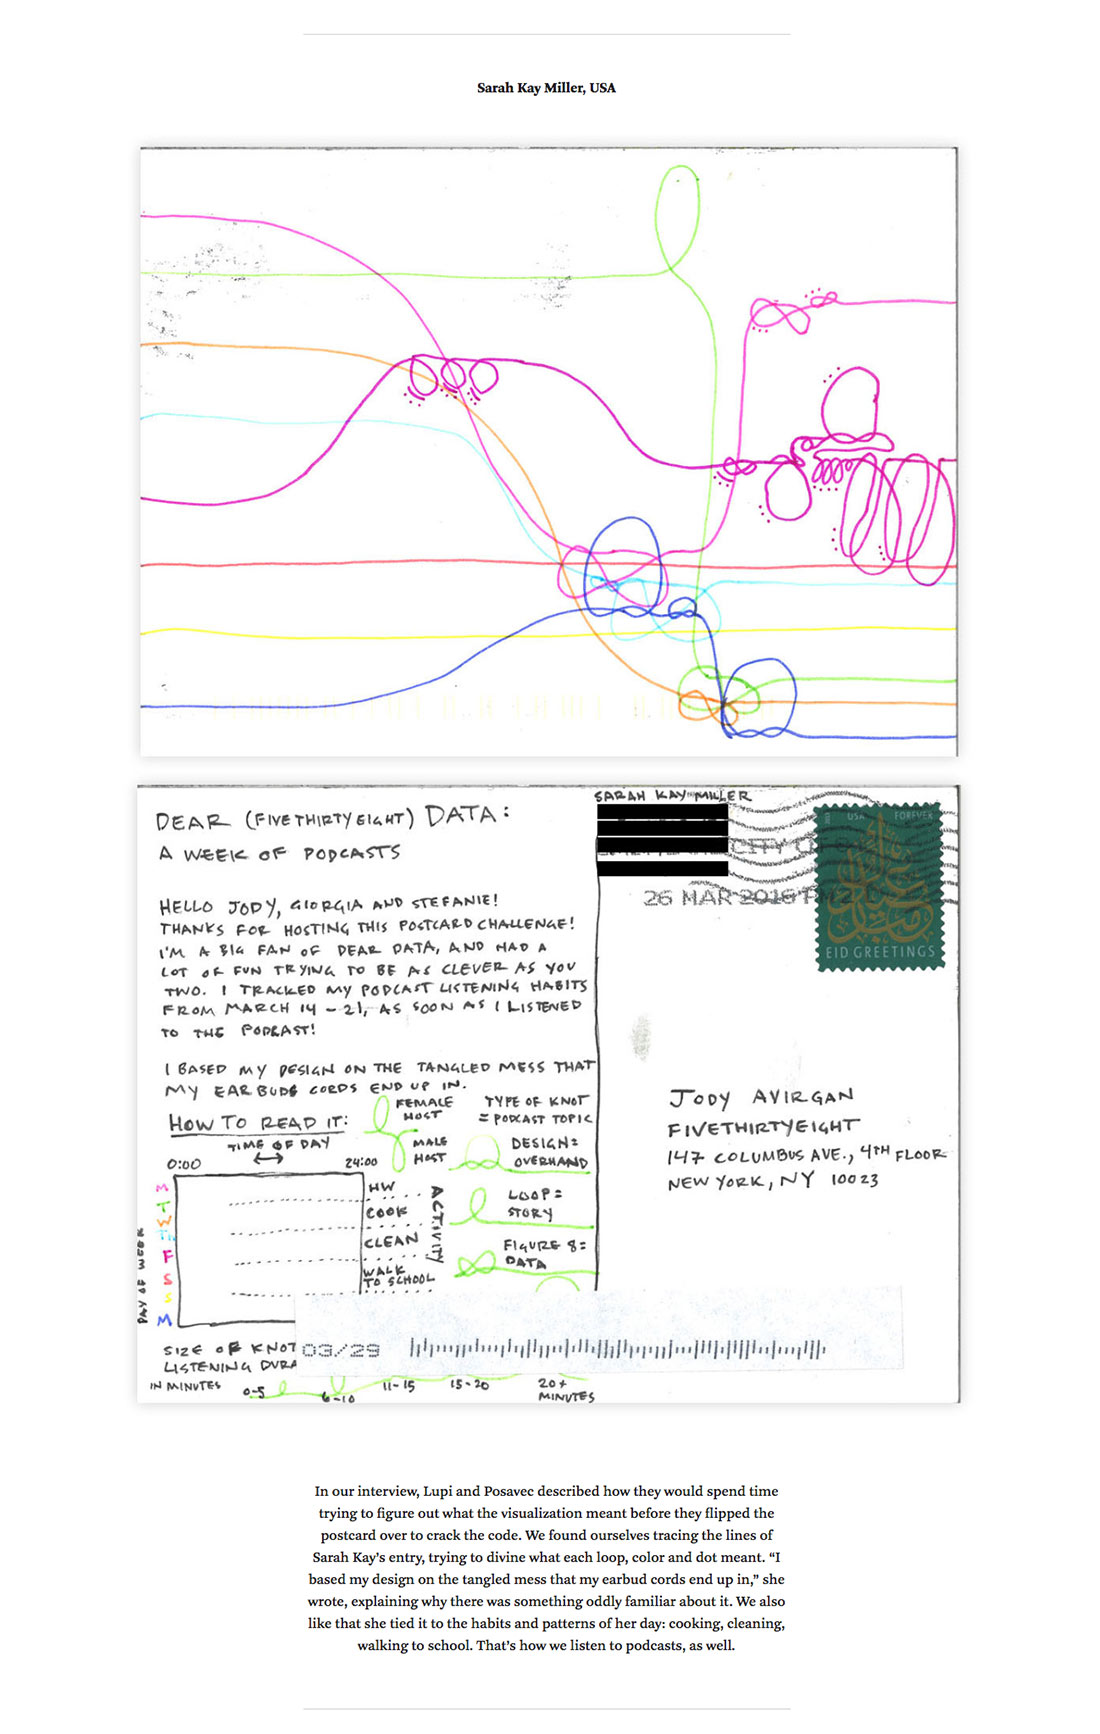 Sarah Kay Miller, USA
DEAR (FIVETHIRTYEIGHT) DATA:
A WEEK OF PODCASTS
HELLO JODY, GIORGIA AND STEFANIE!
THANKS FOR HOSTING THIS POSTCARD CHALLENGE!
I'M A BIG FAN OF DEAR DATA, AND HAD A
LOT OF FUN TRYING TO BE AS CLEVER AS YOU
TWO. I TRACKED MY PODCAST LISTENING HABITS
FROM MARCH 14 – 21, AS SOON AS I LISTENED
TO THE PODCAST!
I BASED MY DESIGN ON THE TANGLED MESS THAT
MY EAR BUDS CORDS END UP IN.
HOW TO READ IT:
FEMALE
HOST
MALE
HOST
TYPE OF KNOT
= PODCAST TOPIC
DESIGN=
OVERHAND
LOOP=
STORY
FIGURE 8=
DATA
TIME OF DAY
0:00
24:00
DAY OF WEEK
M
T
W
TH
F
S
S
M
HW
COOK
CLEAN
WALK
TO SCHOOL
ACTIVITY
SIZE OF KNOT
LISTENING
IN MINUTES
0-5
6-10
11-15
15-20
20+
MINUTES
SARAH KAY MILLER
CITY
26 MAR 2016 PM 2
USA
FOREVER
EID GREETINGS
JODY AVIRGAN
FIVETHIRTYEIGHT
147 COLUMBUS AVE., 4TH FLOOR
NEW YORK, NY 10023
03/29
In our interview, Lupi and Posavec described how they would spend time
trying to figure out what the visualization meant before they flipped the
postcard over to crack the code. We found ourselves tracing the lines of
Sarah Kay’s entry, trying to divine what each loop, color and dot meant. “I
based my design on the tangled mess that my earbud cords end up in,” she
wrote, explaining why there was something oddly familiar about it. We also
like that she tied it to the habits and patterns of her day: cooking, cleaning,
walking to school. That’s how we listen to podcasts, as well.